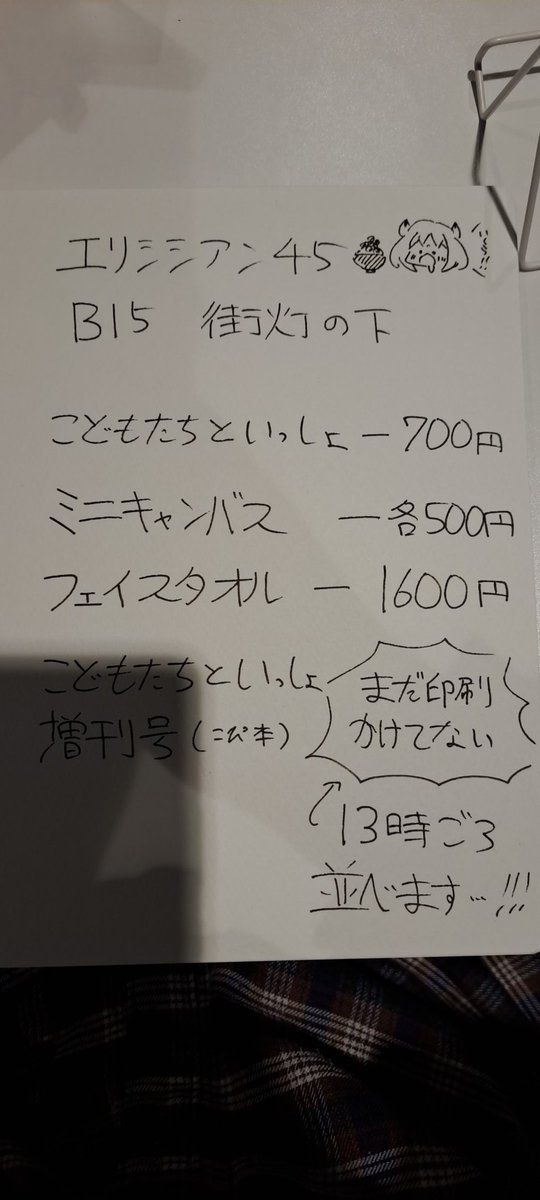 エリシシアン45
B15 街灯の下
こどもたちといっしょ — 700円
ミニキャンバス — 各500円
フェイスタオル — 1600円
こどもたちといっしょ
増刊号(こぴ本)
まだ印刷
かけてない
13時ごろ
並べます…!!!